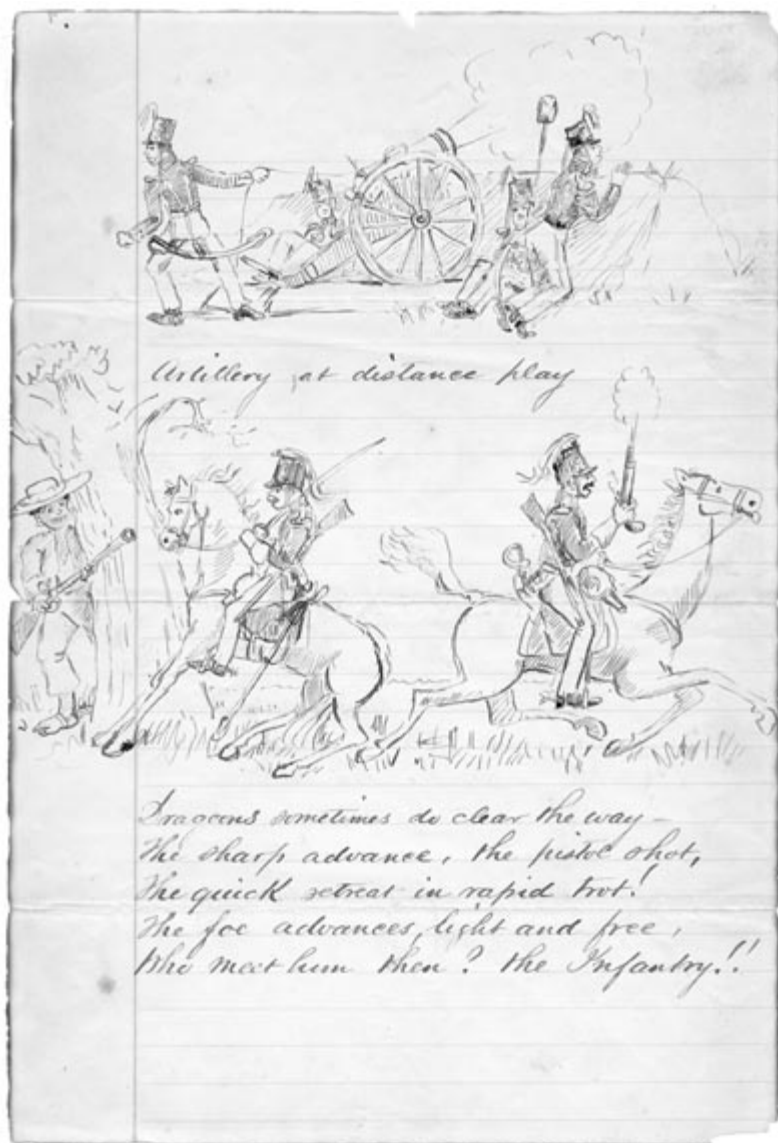 Artillery at distance play
Dragoons sometimes do clear the way –
The sharp advance, the pistol shot,
The quick retreat in rapid trot!
The foe advances, light and free,
Who meet him then? the Infantry!!